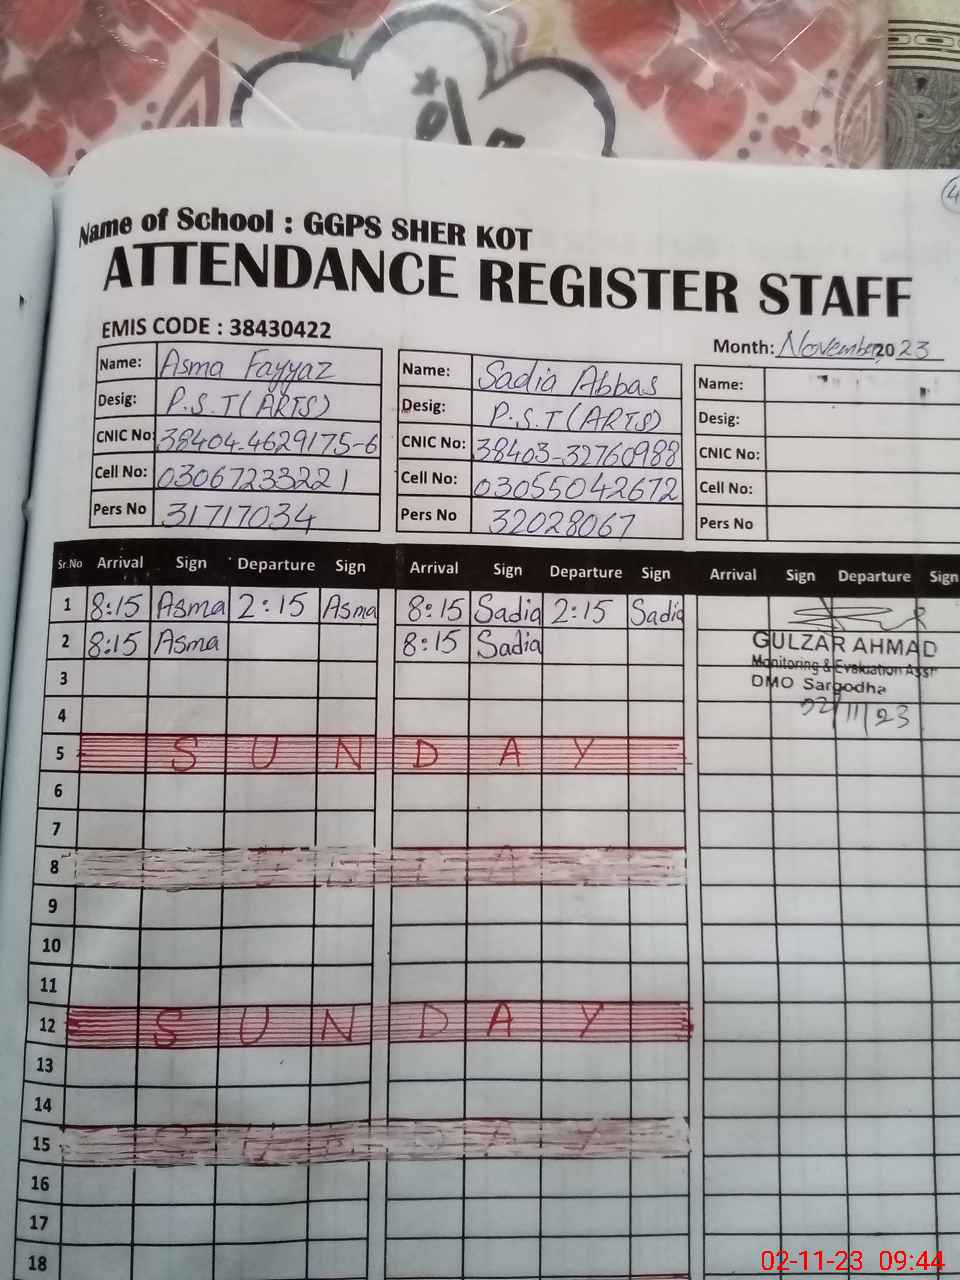 4
Name of School : GGPS SHER KOT
ATTENDANCE REGISTER STAFF
EMIS CODE : 38430422
Month: November, 2023
Name: Asma Fayyaz
Desig: P.S.T(ARTS)
CNIC No: 38404-4629175-6
Cell No: 03067233221
Pers No 31717034
Name: Sadia Abbas
Desig: P.S.T(ARTS)
CNIC No: 38403-32760988
Cell No: 03055042672
Pers No 32028067
Name:
Desig:
CNIC No:
Cell No:
Pers No
Sr.No Arrival Sign Departure Sign Arrival Sign Departure Sign Arrival Sign Departure Sign
1 8:15 Asma 2:15 Asma 8:15 Sadia 2:15 Sadia
2 8:15 Asma 8:15 Sadia
GULZAR AHMAD
Monitoring & Evaluation Asstt
DMO Sargodha
02/11/23
3
4
5 SUNDAY
6
7
8
9
10
11
12 SUNDAY
13
14
15
16
17
18
02-11-23 09:44